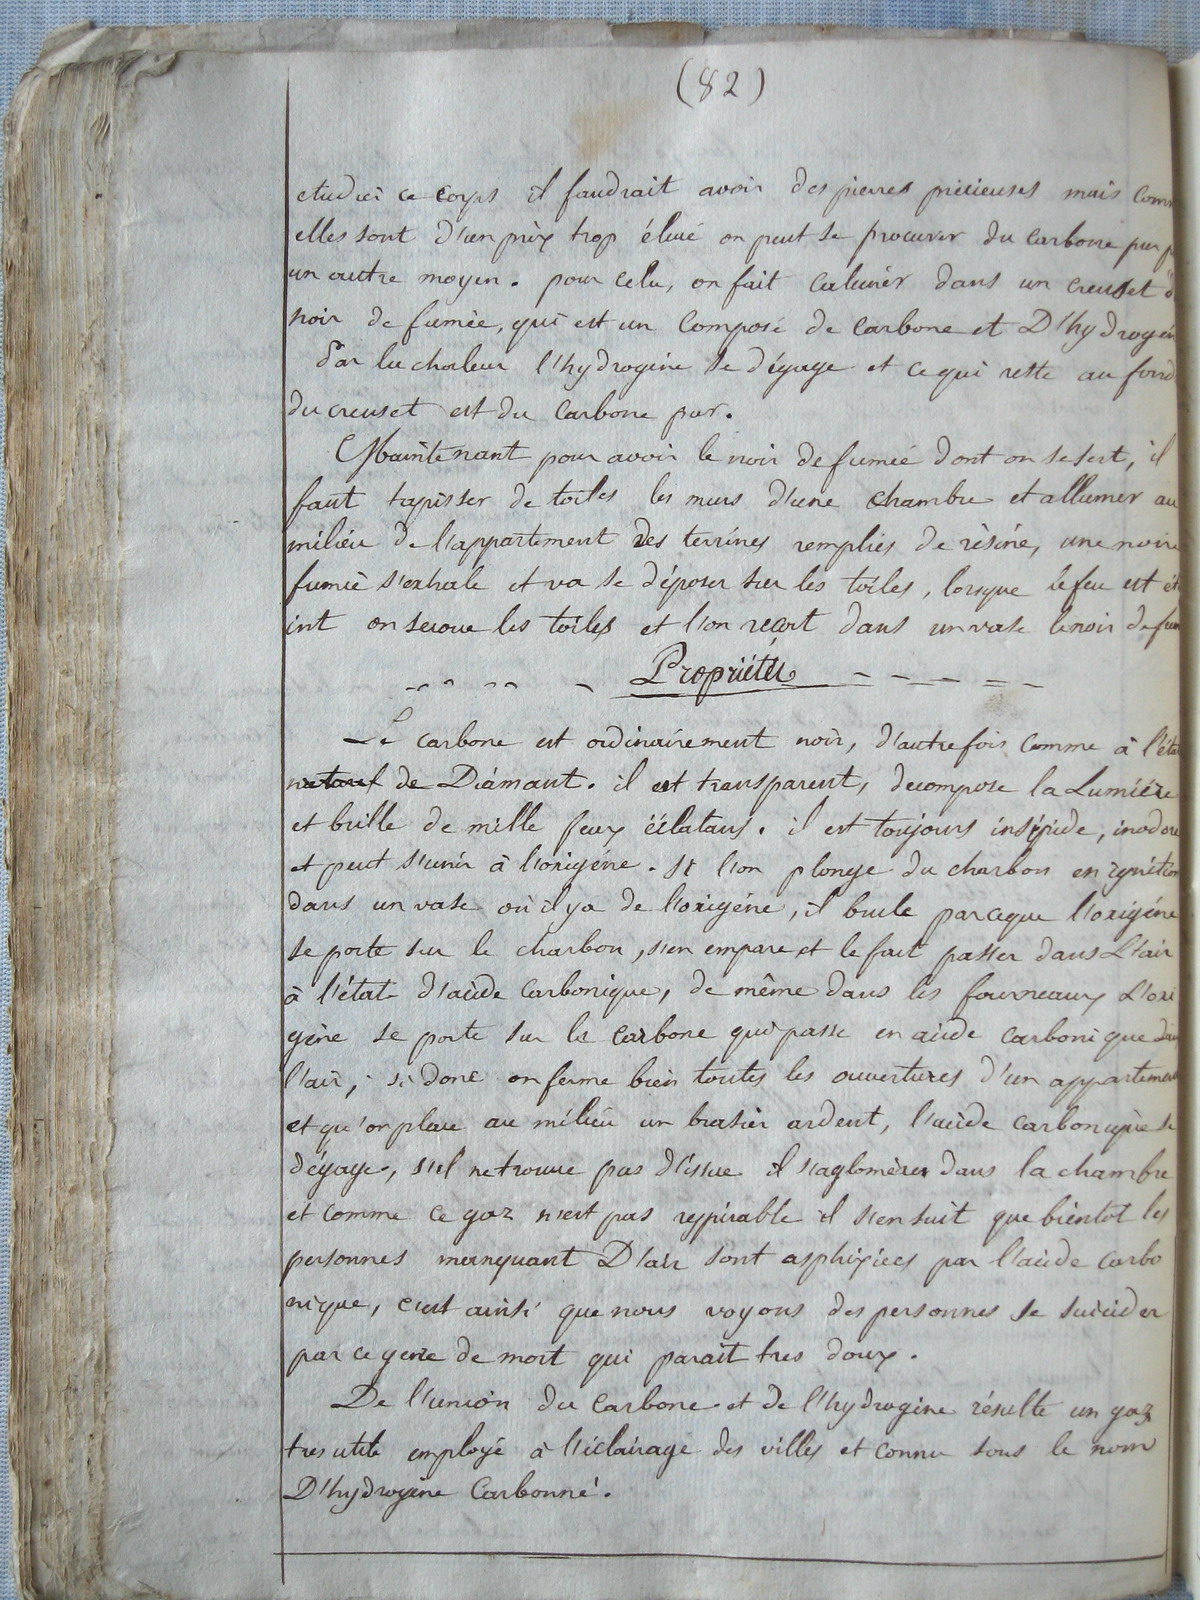 (82)
etudier ce corps il faudrait avoir des pierres précieuses mais com
elles sont d'un prix trop élevé on peut se procurer du carbone pur p
un autre moyen. pour cela, on fait calciner dans un creuset d
noir de fumée, qui est un composé de carbone et D'hydrogèn
Par la chaleur l'hydrogène se dégage et ce qui reste au fond
du creuset est du Carbone pur.
Maintenant pour avoir le noir de fumée dont on se sert, il
faut tapisser de toiles les murs d'une chambre et allumer au
milieu de l'appartement des terrines remplies de résine, une noire
fumée s'exhale et va se déposer sur les toiles, lorsque le feu est ét
int on secoue les toiles et l'on reçoit dans un vase le noir de fum
Propriétés
Le carbone est ordinairement noir, d'autrefois comme à l'état
naturel de Diamant. il est transparent, decompose la Lumière
et brille de mille feux éclatans. il est toujours insipide, inodore
et peut s'unir à l'oxigène. Si l'on plonge du charbon en ignition
dans un vase où il y a de l'oxigène, il brule parceque l'oxigène
se porte sur le charbon, s'en empare et le fait passer dans L'air
à l'état d'acide Carbonique, de même dans les fourneaux L'oxi
gène se porte sur le carbone qui passe en acide carbonique dans
l'air, si donc on ferme bien toutes les ouvertures d'un appartement
et qu'on place au milieu un brasier ardent, l'acide carbonique se
dégage, s'il ne trouve pas d'issue il s'aglomère dans la chambre
et comme ce gaz n'est pas respirable il s'en suit que bientot les
personnes manquant D'air sont asphixiées par l'acide carbo
nique, c'est ainsi que nous voyons des personnes se suicider
par ce genre de mort qui parait tres doux.
De l'union du Carbone et de l'hydrogène résulte un gaz
tres utile employé à l'éclairage des villes et connu sous le nom
D'hydrogène Carbonné.